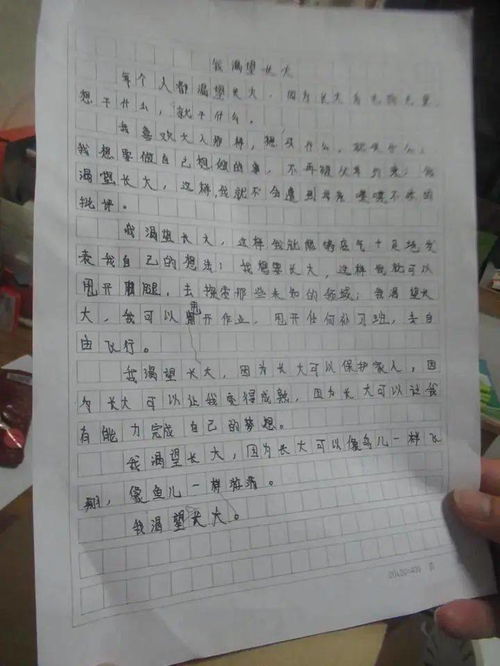 我渴望长大
每个人都渴望长大，因为长大后无拘无束，
想干什么，就干什么。
我喜欢大人那样，想买什么，就买什么，
我想要做自己想做的事，不再被父母约束；我
渴望长大，这样我就不会遭到母亲喋喋不休的
批评。
我渴望长大，这样我能底气十足地发
表我自己的想法；我想要长大，这样我就可以
甩开腿，去探索那些未知的领域；我渴望长
大，我可以甩开作业，甩开任何补习班，去自
由飞行。
我渴望长大，因为长大可以保护家人，因
为长大可以让我变得成熟，因为长大可以让我
有能力完成自己的梦想。
我渴望长大，因为长大可以像鸟儿一样飞
翔，像鱼儿一样游。
我渴望长大。